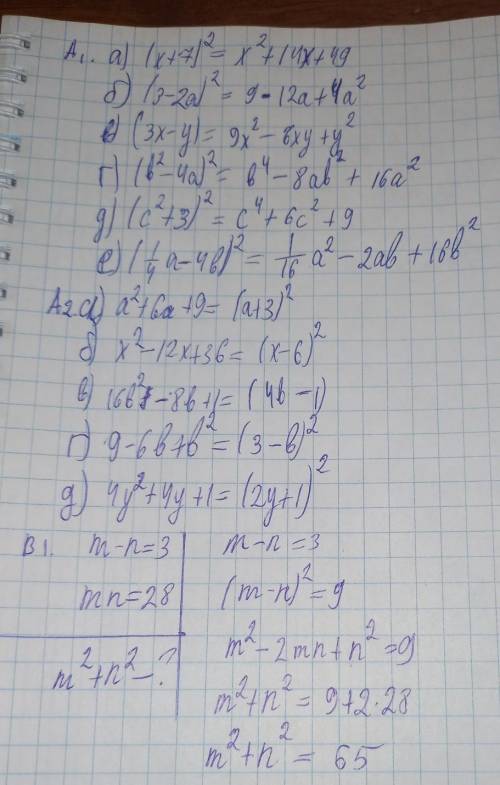 А1. а) (x+7)² = x²+14x+49
б) (3-2a)² = 9-12a+4a²
в) (3x-y) = 9x²-8xy+y²
г) (b²-4a)² = b⁴-8ab²+16a²
д) (c²+3)² = c⁴+6c²+9
е) (1/4a-4b)² = 1/16 a²-2ab+16b²
А2 а) a²+6a+9 = (a+3)²
б) x²-12x+36 = (x-6)²
в) 16b²-8b+1 = (4b-1)
г) 9-6b+b² = (3-b)²
д) 4y²+4y+1 = (2y+1)²
В1. m-n=3
mn=28
m²+n²-?
m-n=3
(m-n)²=9
m²-2mn+n²=9
m²+n² = 9+2·28
m²+n² = 65